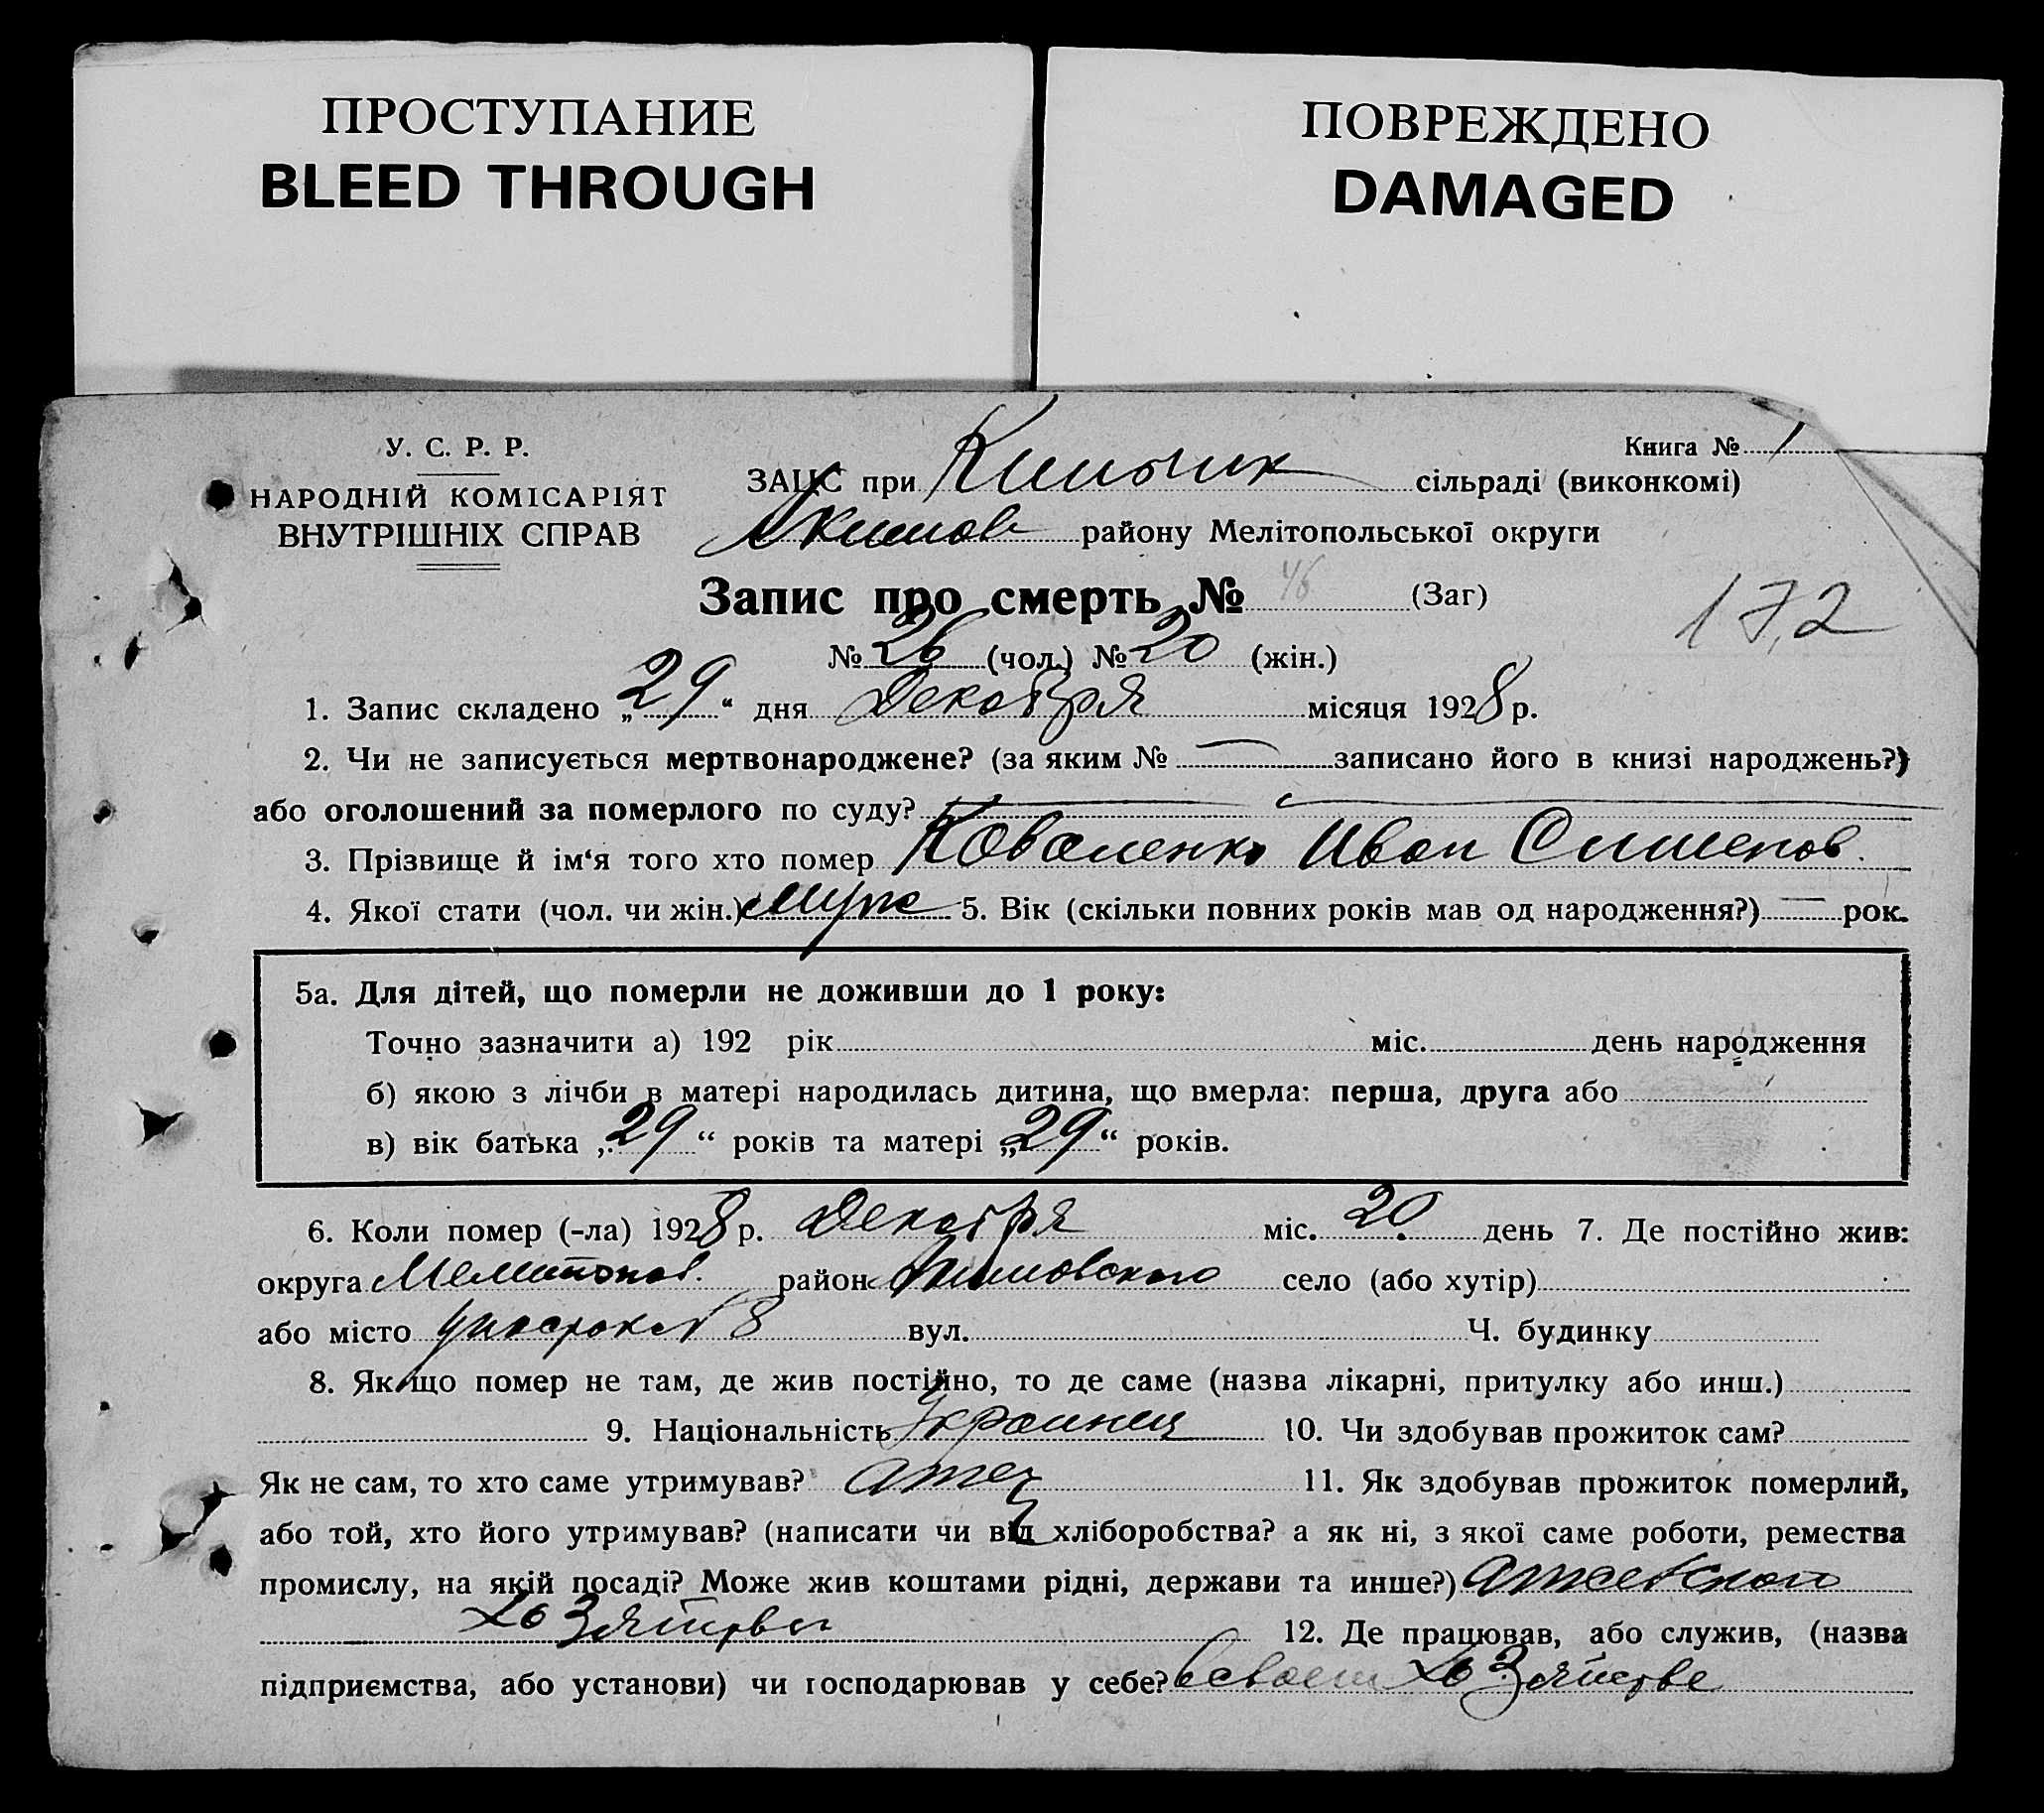 ПРОСТУПАНИЕ
BLEED THROUGH
ПОВРЕЖДЕНО
DAMAGED
У. С. Р. Р.
НАРОДНІЙ КОМІСАРІЯТ
ВНУТРІШНІХ СПРАВ
Книга № 1
ЗАЦС при сільраді (виконкомі)
Акимов району Мелітопольської округи
Запис про смерть № 46 (Заг)
172
№ 26 (чол.) № 20 (жін.)
1. Запис складено „29“ дня Декабря місяця 1928 р.
2. Чи не записується мертвонароджене? (за яким № — записано його в книзі народжень?)
або оголошений за померлого по суду? —
3. Прізвище й ім‘я того хто помер Коваленко Иван
4. Якої стати (чол. чи жін.) муж 5. Вік (скільки повних років мав од народження?) — рок.
5а. Для дітей, що померли не доживши до 1 року:
Точно зазначити а) 192 рік міс. день народження
б) якою з лічби в матері народилась дитина, що вмерла: перша, друга або
в) вік батька „29“ років та матері „29“ років.
6. Коли помер (-ла) 1928 р. Декабря міс. 20 день 7. Де постійно жив:
округа Мелитопол. район Акимовского село (або хутір)
або місто 8 вул. Ч. будинку
8. Якщо помер не там, де жив постійно, то де саме (назва лікарні, притулку або инш.)
9. Національність Украинец 10. Чи здобував прожиток сам?
Як не сам, то хто саме утримував? атец 11. Як здобував прожиток померлий,
або той, хто його утримував? (написати чи від хліборобства? а як ні, з якої саме роботи, ремества
промислу, на якій посаді? Може жив коштами рідні, держави та инше?)
хозяйства 12. Де працював, або служив, (назва
підприємства, або установи) чи господарював у себе? в своем хозяйстве